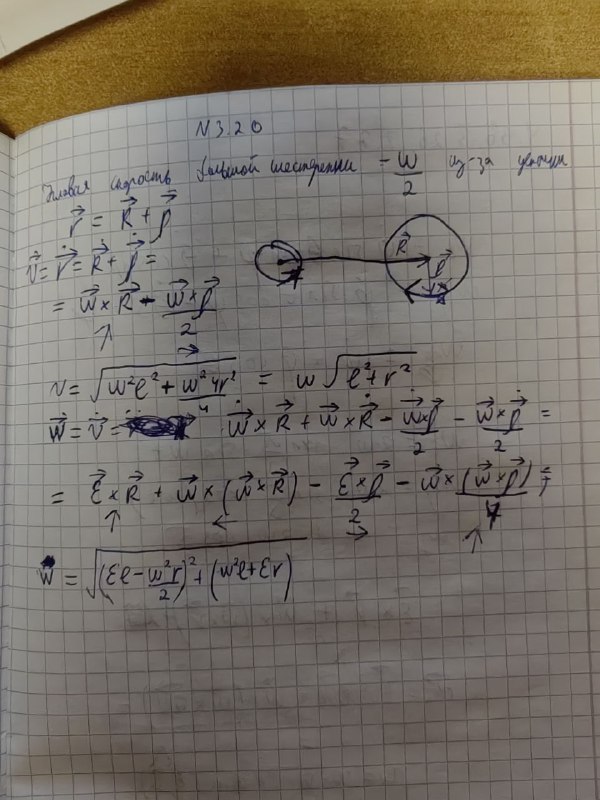 N 3.20
Угловая скорость большой шестеренки = w/2 из-за
r⃗ = R⃗ + ρ⃗
R⃗
ρ⃗
v⃗ = ṙ⃗ = Ṙ⃗ + ρ̇⃗ =
= w⃗ × R⃗ - (w⃗ × ρ⃗)/2
↑
→
v = √(w²l² + w²4r²/4) = w √(l² + r²)
W⃗ = v̇⃗ = ẇ⃗ × R⃗ + w⃗ × Ṙ⃗ - (ẇ⃗ × ρ⃗)/2 - (w⃗ × ρ̇⃗)/2 =
= ε⃗ × R⃗ + w⃗ × (w⃗ × R⃗) - (ε⃗ × ρ⃗)/2 - w⃗ × (w⃗ × ρ⃗)/4 =
↑ ← → ↑
W = √((εl - w²r/2)² + (w²l + εr)